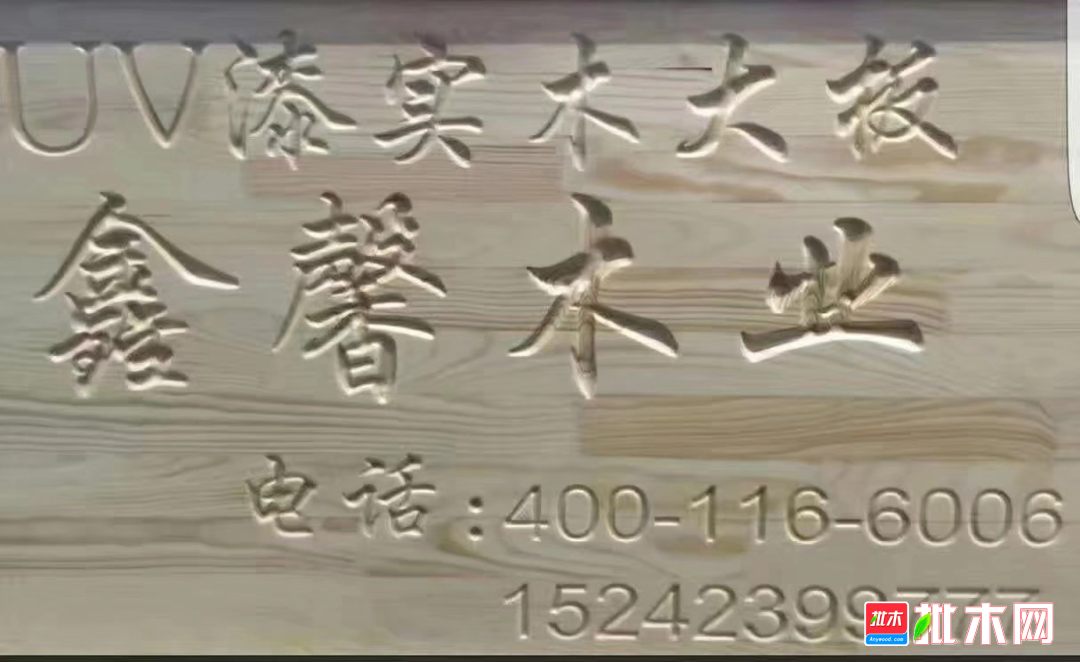 UV漆实木大板
鑫馨木业
电话:400-116-6006
15242399777
批木 Anywood.com 批木网